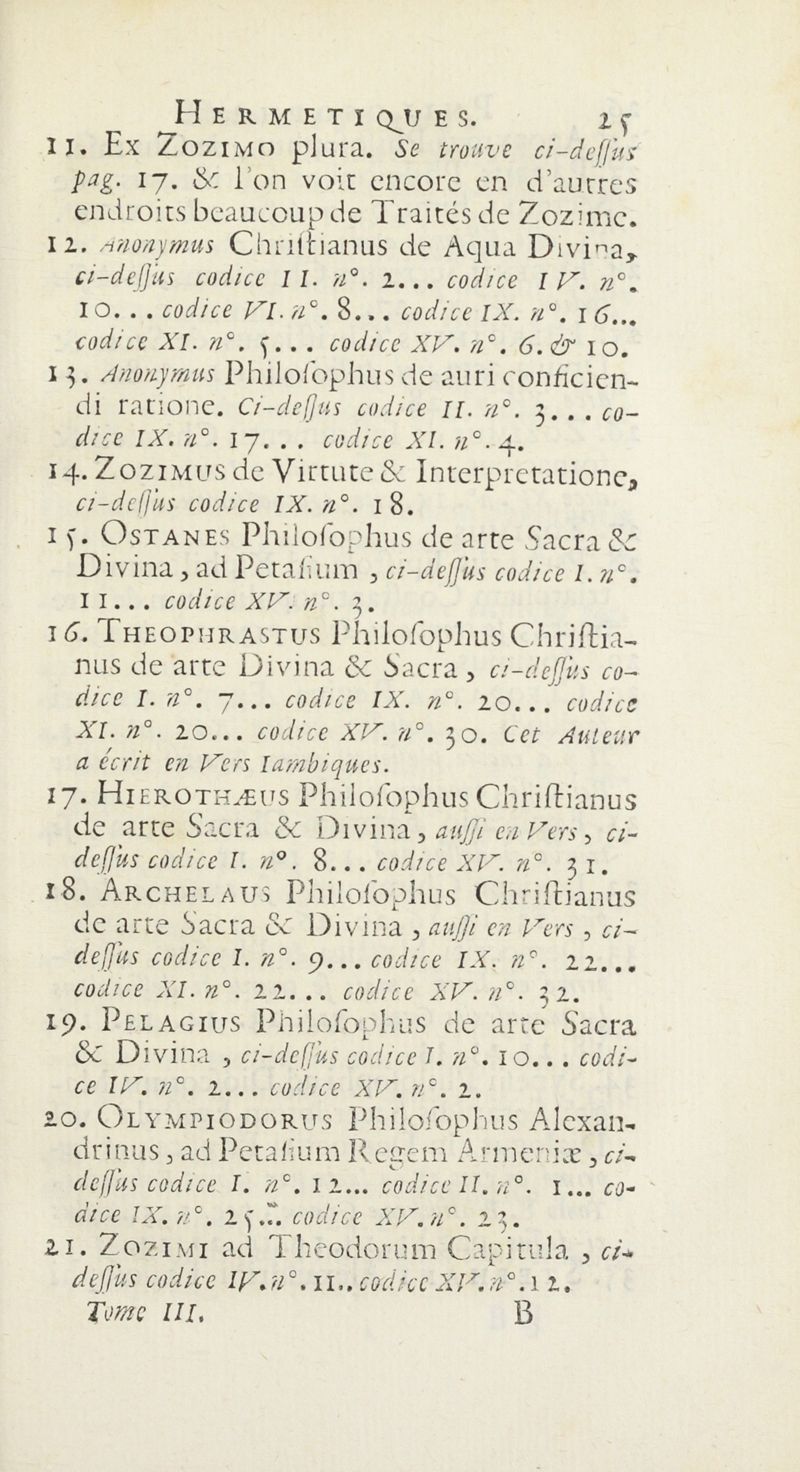 HERMETIQUES. 25
11. EX ZOZIMO plura. Se trouve ci-deſſus
pag. 17. & l'on voit encore en d'autres
endroits beaucoup de Traités de Zozime.
12. Anonymus Chriſtianus de Aqua Divina,
ci-deſſus codice II. n°. 2... codice IV. n°.
10... codice VI. n°. 8... codice IX. n°. 16...
codice XI. n°. 5... codice XV. n°. 6. & 10.
13. Anonymus Philoſophus de auri conficien-
di ratione. Ci-deſſus codice II. n°. 3... co-
dice IX. n°. 17... codice XI. n°. 4.
14. ZOZIMUS de Virtute & Interpretatione,
ci-deſſus codice IX. n°. 18.
15. OSTANES Philoſophus de arte Sacra &
Divina, ad Petaſium, ci-deſſus codice I. n°.
11... codice XV. n°. 3.
16. THEOPHRASTUS Philoſophus Chriſtia-
nus de arte Divina & Sacra, ci-deſſus co-
dice I. n°. 7... codice IX. n°. 20... codice
XI. n°. 20... codice XV. n°. 30. Cet Auteur
a écrit en Vers Iambiques.
17. HIEROTHÆUS Philoſophus Chriſtianus
de arte Sacra & Divina, auſſi en Vers, ci-
deſſus codice I. n°. 8... codice XV. n°. 31.
18. ARCHELAUS Philoſophus Chriſtianus
de arte Sacra & Divina, auſſi en Vers, ci-
deſſus codice I. n°. 9... codice IX. n°. 22...
codice XI. n°. 22... codice XV. n°. 32.
19. PELAGIUS Philoſophus de arte Sacra
& Divina, ci-deſſus codice I. n°. 10... codi-
ce IV. n°. 2... codice XV. n°. 2.
20. OLYMPIODORUS Philoſophus Alexan-
drinus, ad Petaſium Regem Armeniæ, ci-
deſſus codice I. n°. 12... codice II. n°. 1... co-
dice IX. n°. 25... codice XV. n°. 23.
21. ZOZIMI ad Theodorum Capitula, ci-
deſſus codice IV. n°. 11.. codice XV. n°. 12.
Tome III. B